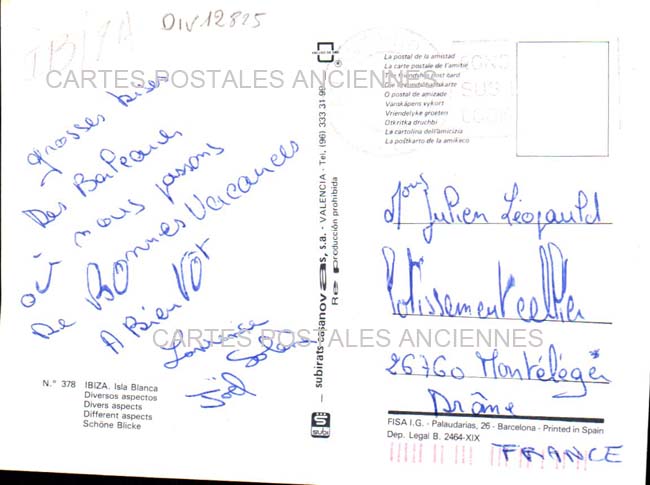 IBIZA
DIV12825
CARTES POSTALES ANCIENNES
grosses bises
Des Baléares
où nous passons
De BONNES Vacances
A BIENTÔT
Laurence
Joël
N.° 378 IBIZA. Isla Blanca
Diversos aspectos
Divers aspects
Different aspects
Schöne Blicke
subirats casanovas, s.a. - VALENCIA - Tel. (96) 333 31 99
Reproducción prohibida
subi
La postal de la amistad
La carte postale de l'amitié
The friendship post card
Die Freundschaftskarte
O postal de amizade
Vanskápens vykort
Vriendelyke groeten
Otkritka druchbi
La cartolina dell'amicizia
La poŝtkarto de la amikeco
Julien Léopauld
26760 Montéléger
Drôme
FRANCE
CARTES POSTALES ANCIENNES
FISA I.G. - Palaudarias, 26 - Barcelona - Printed in Spain
Dep. Legal B. 2464-XIX